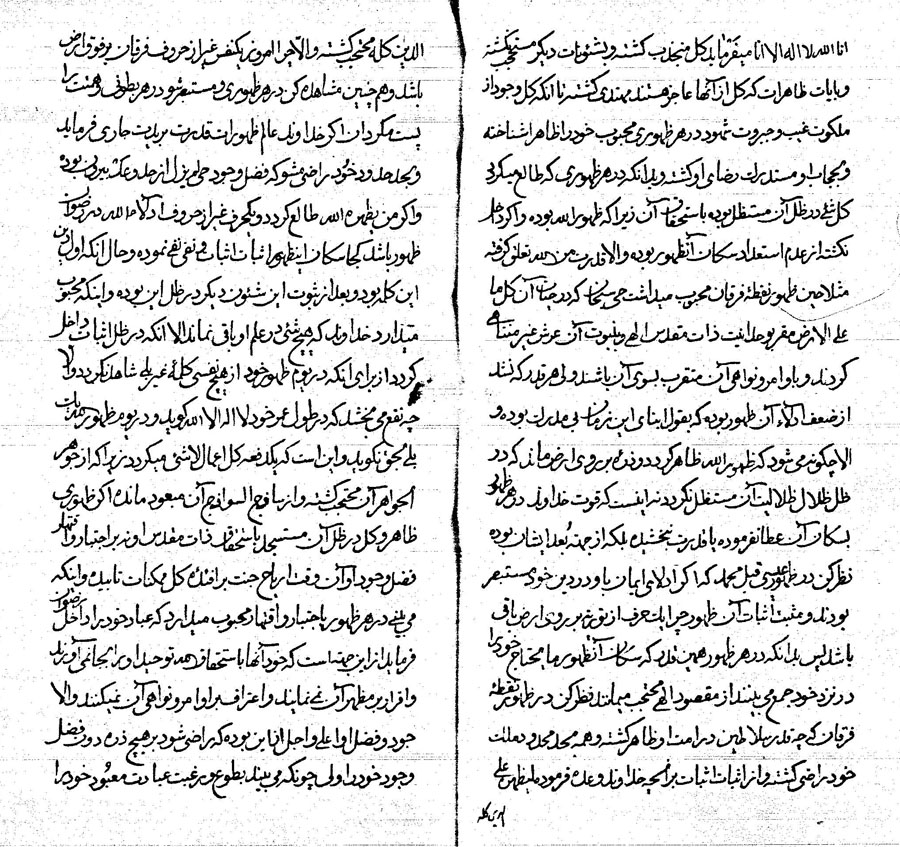 انا الله لا اله الا انا میفرماید کل منجذب کشته و بشئونات دیکر محتجب نکشته
و بایات ظاهرات که کل از آنها عاجز هستند مهتدی کشته تا انکه کل وجود از
ملکوت غیب و جبروت شهود در هر ظهوری محبوب خود را ظاهرا شناخته
و بمحاب او مستدرك رضای او کشته و بدانکه در هر ظهوری که طالع میکردد
کل شیء در ظل آن مستظل بوده باستحقاق آن زیرا که ظهور الله بوده و اکر داخل
نکشته از عدم استعداد سکان آنظهور بوده و الا قدرت من الله تعلق کرفته
مثلا حین ظهور نقطهٔ فرقان محبوب میداشت حق سبحان که در حیات آن کل ما
علی الارض مقر بوحدانیت ذات مقدس الهی و بثبوت آن عرش غیر متناهی
کردند و باوامر و نواهی آن متقرب بسوی آن باشند ولی هر قدر که نشد
از ضعف ادلاء آن ظهور بوده که بقول ابنای این زمان بی مدرك بوده و
الا چکونه می شود که ظهور الله ظاهر کردد و ذره بر روی ارض ماند که در
ظل ظلال ظلالیت آن مستظل نکردد نه اینست که قوت خداوند در هر ظهور
بسکان آن عطا نفرموده یا قدرت نبخشیده بلکه از جهة بُعد ایشان بوده
نظر کن در ظهور عیسی قبل محمد که اکر ادلای ایمان باو در دین خود مستبصر
بودند و مثبت اثبات آن ظهور چرا یك حرف از نوع غیر بروی ارض باقی
باشد پس بدانکه در هر ظهور همین قدر که سکان آنظهور ما یحتاج خود را
در نزد خود جمع می بینند از مقصود الهی محتجب میمانند نظر کن در ظهور نقطهٔ
فرقان که چه قدر سلاطین در امت او ظاهر کشته و همه بحد محدود مملکت
خود راضی کشته و از اثبات اثبات برانچه خداوند وعده فرموده لیظهره علی
الدین کله
الدین کله محتجب کشته و الا چرا امروز یکنفس غیر از حروف فرقان بر فوق ارض
باشد و همچنین مشاهده کن در هر ظهوری و مستبصر شو در هر بطونی و همت را
پست مکردان اکر خداوند عالم ظهورات قدرت بر یدت جاری فرماید
و بحد حدود خود راضی مشو که فضل وجود حی لم یزل از حد و عد بیرون بوده
و اکر من یظهره الله طالع کردد و یکحرف غیر از حروف ادلاء الله در رضوان
ظهور باشد کجا سکان اینظهور اثبات اثبات و نفی نفی نموده و حال آنکه اول دین
این کلمه بود و بعد از ثبوت این شئون دیکر در ظل این بوده و اینکه محبوب
میدارد خداوند که هیچ شئی در علم او باقی نماند الا انکه در ظل اثبات داخل
کردد از برای آنکه در یوم ظهور خود از هیچ نفسی کلمهٔ غیر بلی شاهد نکردد و الا
چه نفع می بخشد که در طول عمر خود لا اله الا الله کوید و در یوم ظهور
بلی بحق نکوید و این است که یکدفعه کل اعمال لاشئی میکردد زیرا که از جوهر
الجواهر آن محتجب کشته و از ساذج السواذج آن مبعود مانده اکر ظهوری
ظاهر و کل در ظل آن مستسجد باستحقاق ذات مقدس او نه بر اجبار و اقتهار
فضل وجود او آن وقت اریاح جنت بر افئدهٔ کل ممکنات تابیده و اینکه
می بینی در هر ظهور باجبار و اقتهار محبوب میدارد که عباد خود را داخل رضوان
فرماید از این جهة است که خود آنها باستحقاق همه توحید او بر ایجا نمی آورند
و اقرار بر مظهر آن نمی نمایند و اعتراف بر اوامر و نواهی آن نمیکنند و الا
جود و فضل او اعلی و اجل از این بوده که راضی شود بر هیچ ذره دون فضل
وجود خود را ولی چونکه می بیند بطوع و رغبت عبادت معبود خود را